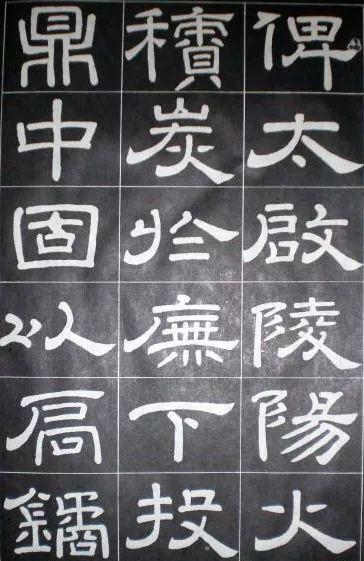 俾太啟陵陽火
積炭於廡下投
鼎中固以扃鐍